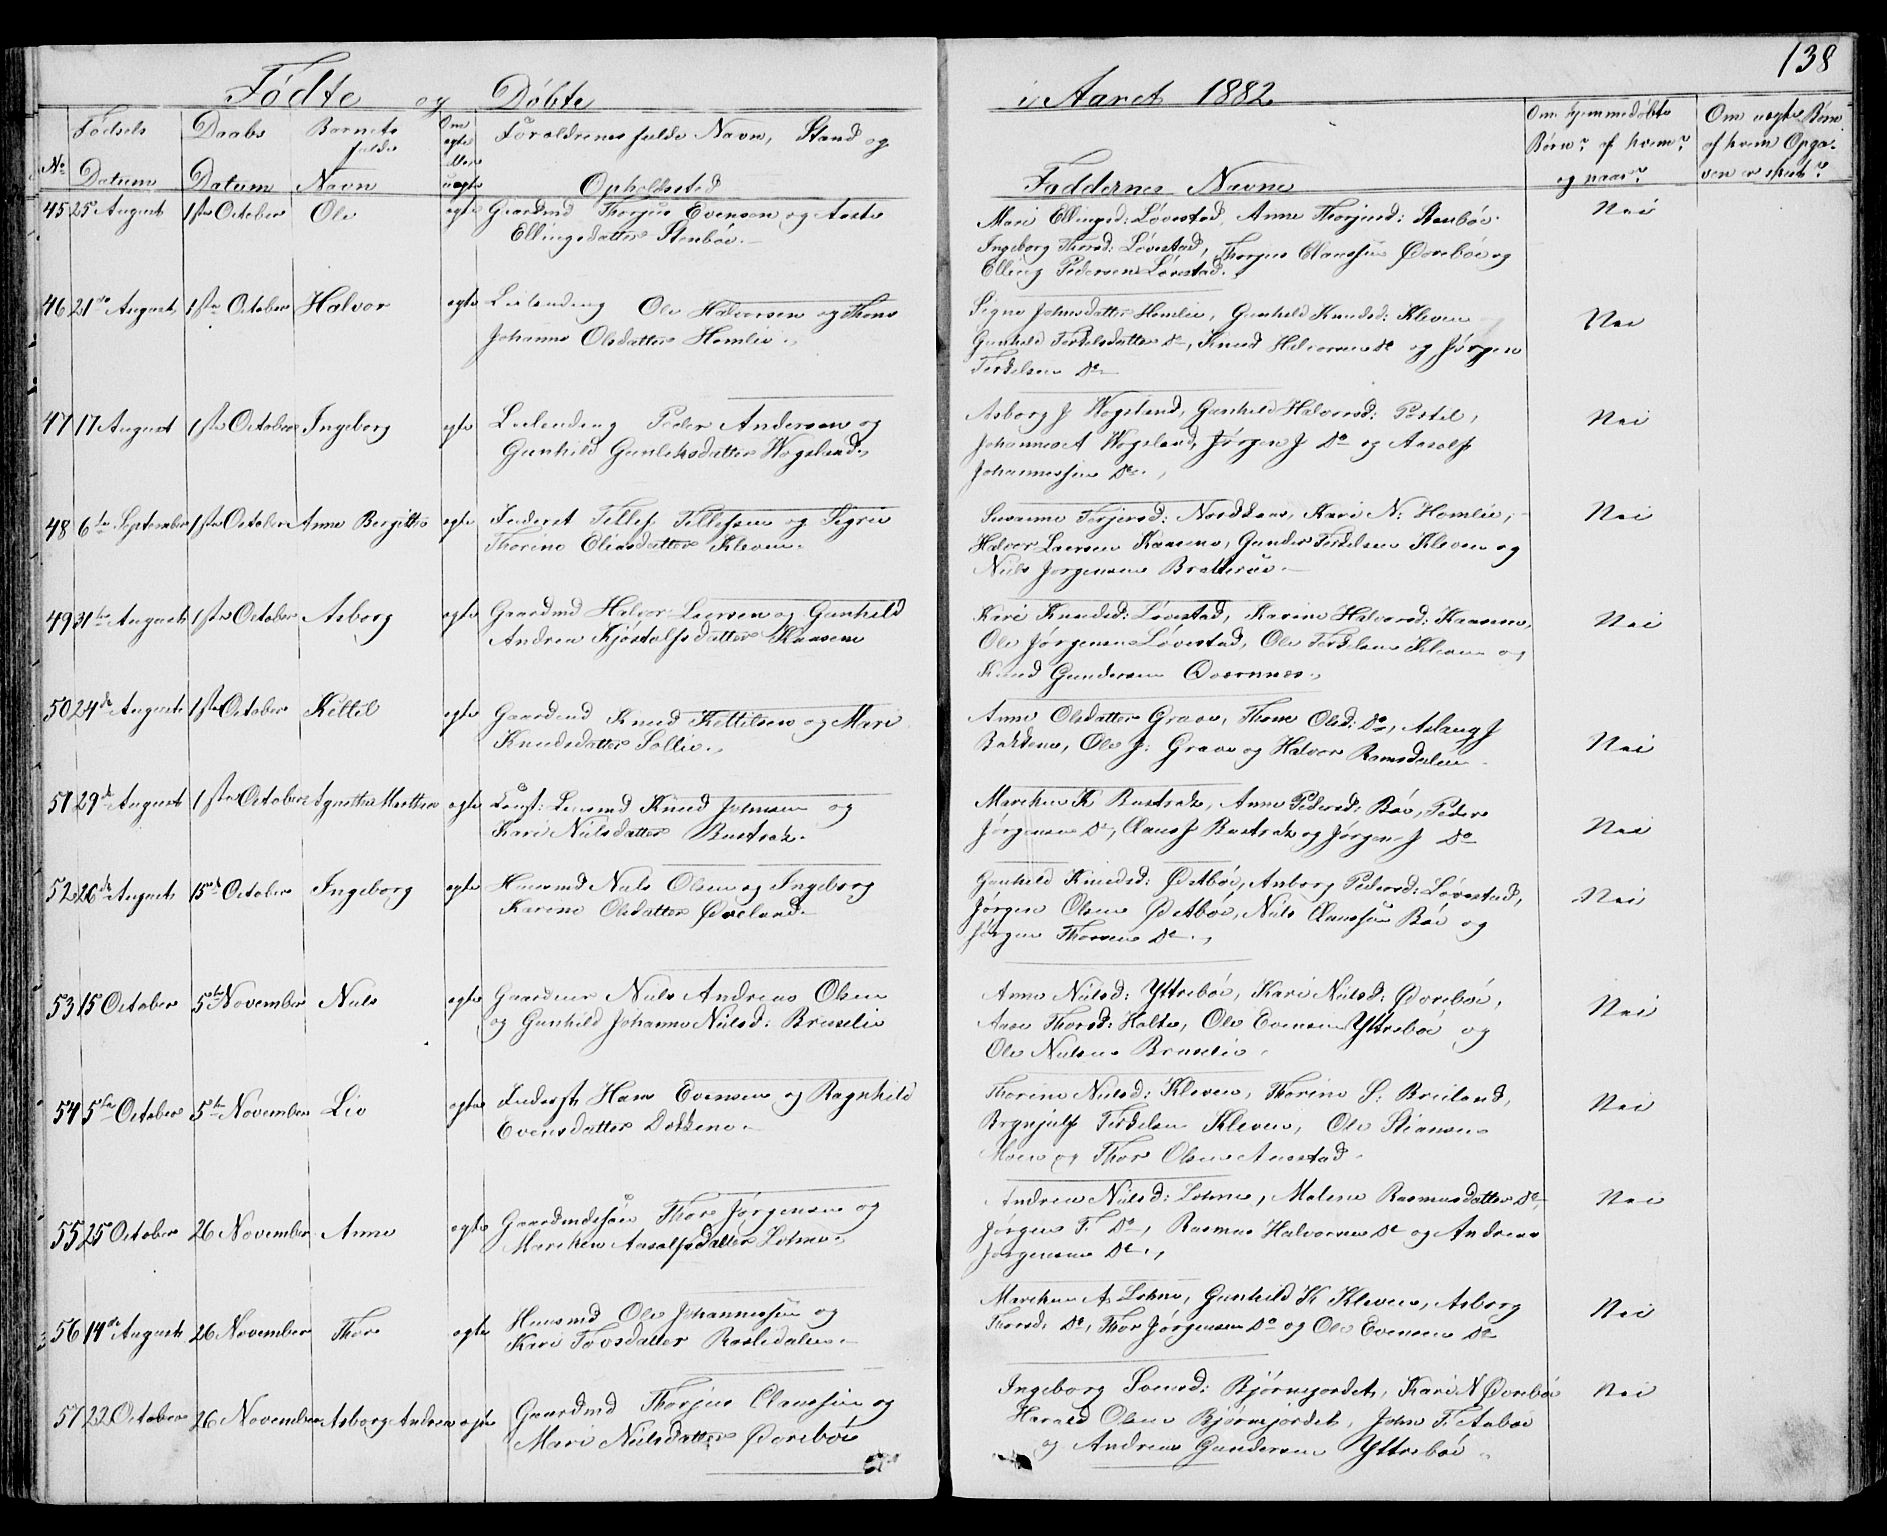 138
Fødte og Døbte i Aaret 1882
No
Fødsels Datum
Daabs Datum
Barnets fulde Navn
Om egte eller uegte
Forældrenes fulde Navn, Stand og Opholdssted
Faddernes Navne
Om hjemmedøbte Børn? af hvem? og naar?
Om uegte Børn af hvem Opga- ven er skeet?
45 25 August 1ste October Ole egte Gaardmd Thorjus Evensen og Aaste
Ellingsdatter Stenbøe.
Mari Ellingsd: Løvestad, Anne Thorjusd: Stenbøe.
Ingeborg Thorsd: Løvestad, Thorjus Claussen Øvrebøe og
Elling Pedersen Løvestad.
Nei
46 21de August 1ste October Halvor egte Leilending Ole Halvorsen og Thone
Johanne Olsdatter Homlie.
Signe Johnsdatter Homlie, Gunhild Knudsd: Kleven
Gunhild Terkelsdatter Do, Knud Halvorsen Do og Jørgen
Terkelsen Do
Nei
47 17 August 1ste October Ingeborg egte Leilending Peder Andersen og
Gunhild Gunleksdatter Wogsland.
Asborg J Wogsland, Gunhild Halvorsd:
Johannes A Wogsland, Jørgen J Do og Aasolf
Johannessen Do.
Nei
48 6te September 1ste October Anne Bergitte egte Inderst Tellef Tellefsen og Sigrie
Thorine Eliasdatter Kleven.
Susanne Terjersd: Kari N: Homlie,
Halvor Larsen Kaasene, Gunder Terkelsen Kleven og
Niels Jørgensen
Nei
49 31te August 1ste October Asborg egte Gaardmd Halvor Larsen og Gunhild
Andrea Kjøstolfsdatter Kaasene
Kari Knudsd: Løvestad, Karine Halvorsd: Kaasene,
Ole Jørgensen Løvestad, Ole Terkelsen Kleven og
Knud Gundersen Qvernnes.
Nei
50 24de August 1ste October Kittil egte Gaardmd Knud Kettilsen og Mari
Knudsdatter Sollie.
Anne Olsdatter Graav, Thone Olsd: Do, Aslaug J
Bakkene, Ole J: Graav og Halvor Ramsdalen
Nei
51 29de August 1ste October Agnethe Marthea egte Leismd Knud Johnsen og
Kari Nielsdatter Rustrak.
Marchen K Rustrak, Anne Pedersd: Bøe, Peder
Jørgensen Do, Claus J Rustrak og Jørgen J Do
Nei
52 26de August 15de October Ingeborg egte Huusmd Niels Olsen og Ingeborg
Karine Olsdatter Øveland.
Gunhild Knudsd: Østbøe, Anborg Pedersd: Løvestad,
Jørgen Olsen Østbøe, Niels Claussen Bøe og
Jørgen Thorsen Do.
Nei
53 15 October 5te November Niels egte Gaardeier Niels Andreas Olsen
og Gunhild Johanne Nielsd: Bruselie
Anne Nielsd: Yttrebøe, Kari Nielsd: Øvrebøe,
Aase Thorsd: Holte, Ole Evensen Yttrebøe og
Ole Nielsen Bruselie.
Nei
54 5te October 5te November Liv egte Inderst Hans Evensen og Ragnhild
Evensdatter Dokkene.
Thorine Nielsd: Kleven, Thorine S: Breiland,
Brynjulf Terkelsen Kleven, Ole Stiansen
Moen og Thor Olsen Austad.
Nei
55 25 October 26 November Anne egte Gaardmdssøn Thore Jørgensen og
Marchen Aasolfsdatter Lohne.
Andrea Nielsd: Lohne, Malene Rasmusdatter Do,
Jørgen T. Do, Rasmus Halvorsen Do og Andreas
Jørgensen Do.
Nei
56 14de August 26 November Thor egte Huusmd Ole Johannessen og
Kari Tovsdatter Roslidalen.
Marchen A Lohne, Gunhild K Kleven, Asborg
Thorsd: Do, Thor Jørgensen Do og Ole Evensen Do
Nei
57 22 October 26 November Asborg Andrea egte Gaardmd Thorjus Claussen og
Mari Nielsdatter Øvrebøe
Ingeborg Svensd: Bjørnejordet, Kari N Øvrebøe
Harald Olsen Bjørnejordet, John T. Aabøe
og Andreas Gundersen Yttrebøe.
Nei